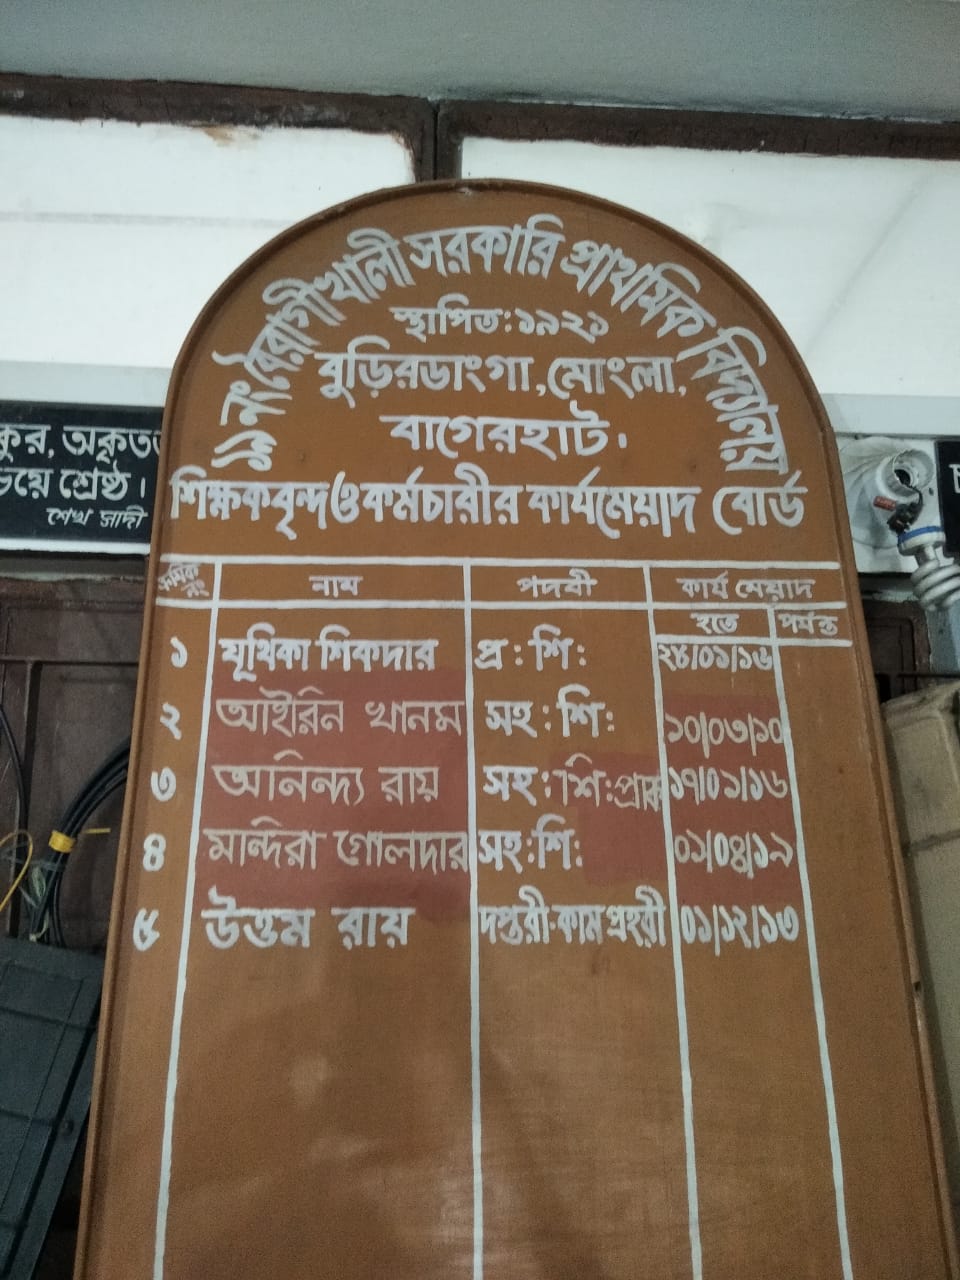 ১৯নং বৈরাগীখালী সরকারি প্রাথমিক বিদ্যালয়
স্থাপিত:১৯২১
বুড়িরডাংগা,মোংলা,
বাগেরহাট।
শিক্ষকবৃন্দ ও কর্মচারীর কার্যমেয়াদ বোর্ড
ক্রমিক নং নাম পদবী কার্য মেয়াদ
হতে পর্যন্ত
১ যুথিকা শিকদার প্র:শি: ২৪/০১/১৬
২ আইরিন খানম সহ:শি: ১০/০৩/১০
৩ অনিন্দ্য রায় সহ:শি:প্রাক ১৭/০১/১৬
৪ মান্দিরা গোলদার সহ:শি: ০১/০৪/১৯
৫ উত্তম রায় দপ্তরী-কাম প্রহরী ০১/১২/১৩
কুর, অকৃতজ্ঞ
চেয়ে শ্রেষ্ঠ।
শেখ সাদী